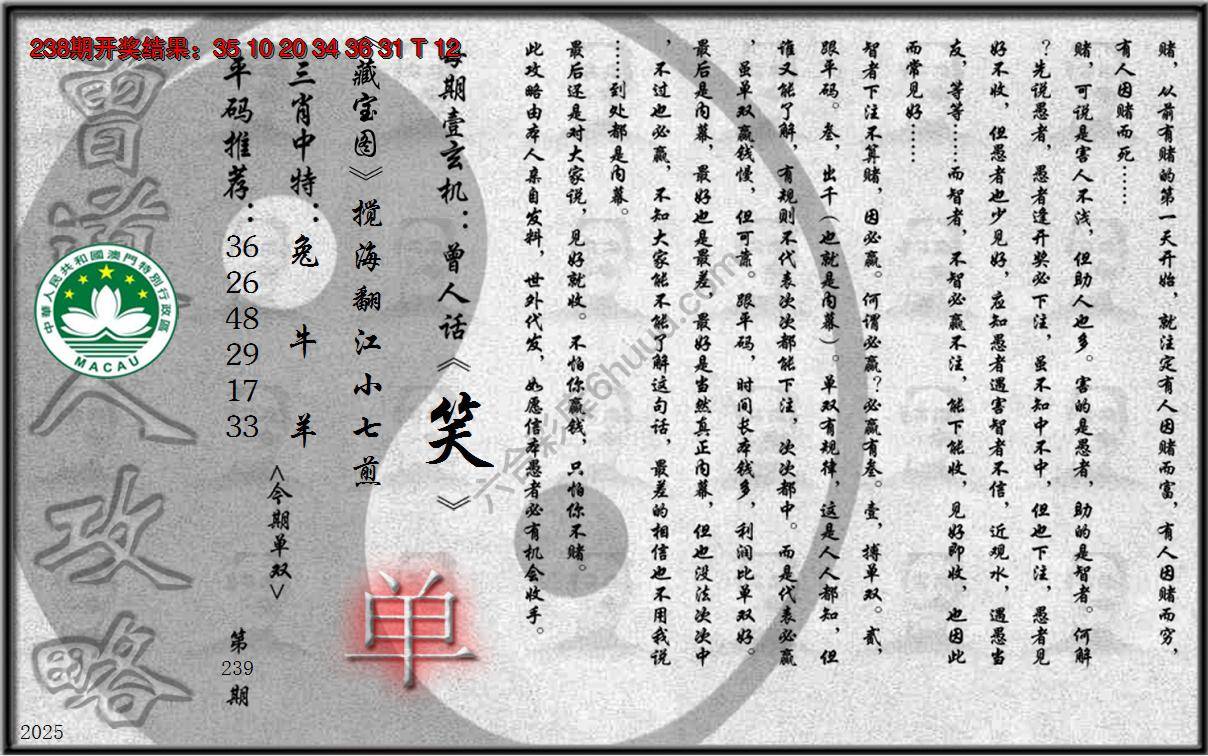 238期开奖结果：35 10 20 34 36 31 T 12
赌，从前有赌的第一天开始，就注定有人因赌而富，有人因赌而穷，
有人因赌而死……
赌，可说是害人不浅，但助人也多。害的是愚者，助的是智者。何解
？先说愚者，愚者逢开奖必下注，虽不知中不中，但也下注，愚者见
好不收，但愚者也少见好，应知愚者遇害智者不信，近观水，遇愚当
友，等等……而智者，不智必赢不注，能下能收，见好即收，也因此
而常见好……
智者下注不算赌，因必赢。何谓必赢？必赢有叁。壹，搏单双。贰，
跟平码。叁，出千（也就是内幕）。单双有规律，这是人人都知，但
谁又能了解，有规则不代表次次都能下注，次次都中。而是代表必赢
，虽单双赢钱慢，但可靠。跟平码，时间长本钱多，利润比单双好。
最后是内幕，最好也是最差，最好是当然真正内幕，但也没法次次中
，不过也必赢，不知大家能不能了解这句话，最差的相信也不用我说
……到处都是内幕。
最后还是对大家说，见好就收。不怕你赢钱，只怕你不赌。
此攻略由本人亲自发料，世外代发，如愿信本愚者必有机会收手。
每期壹玄机：曾人话《笑》
《藏宝图》搅海翻江小七煎
三肖中特：兔 牛 羊
平码推荐：36 26 48 29 17 33
<今期单双>
单
第239期
曾道人攻略
中華人民共和國澳門特別行政區
MACAU
六合彩库6huuu.com
2025